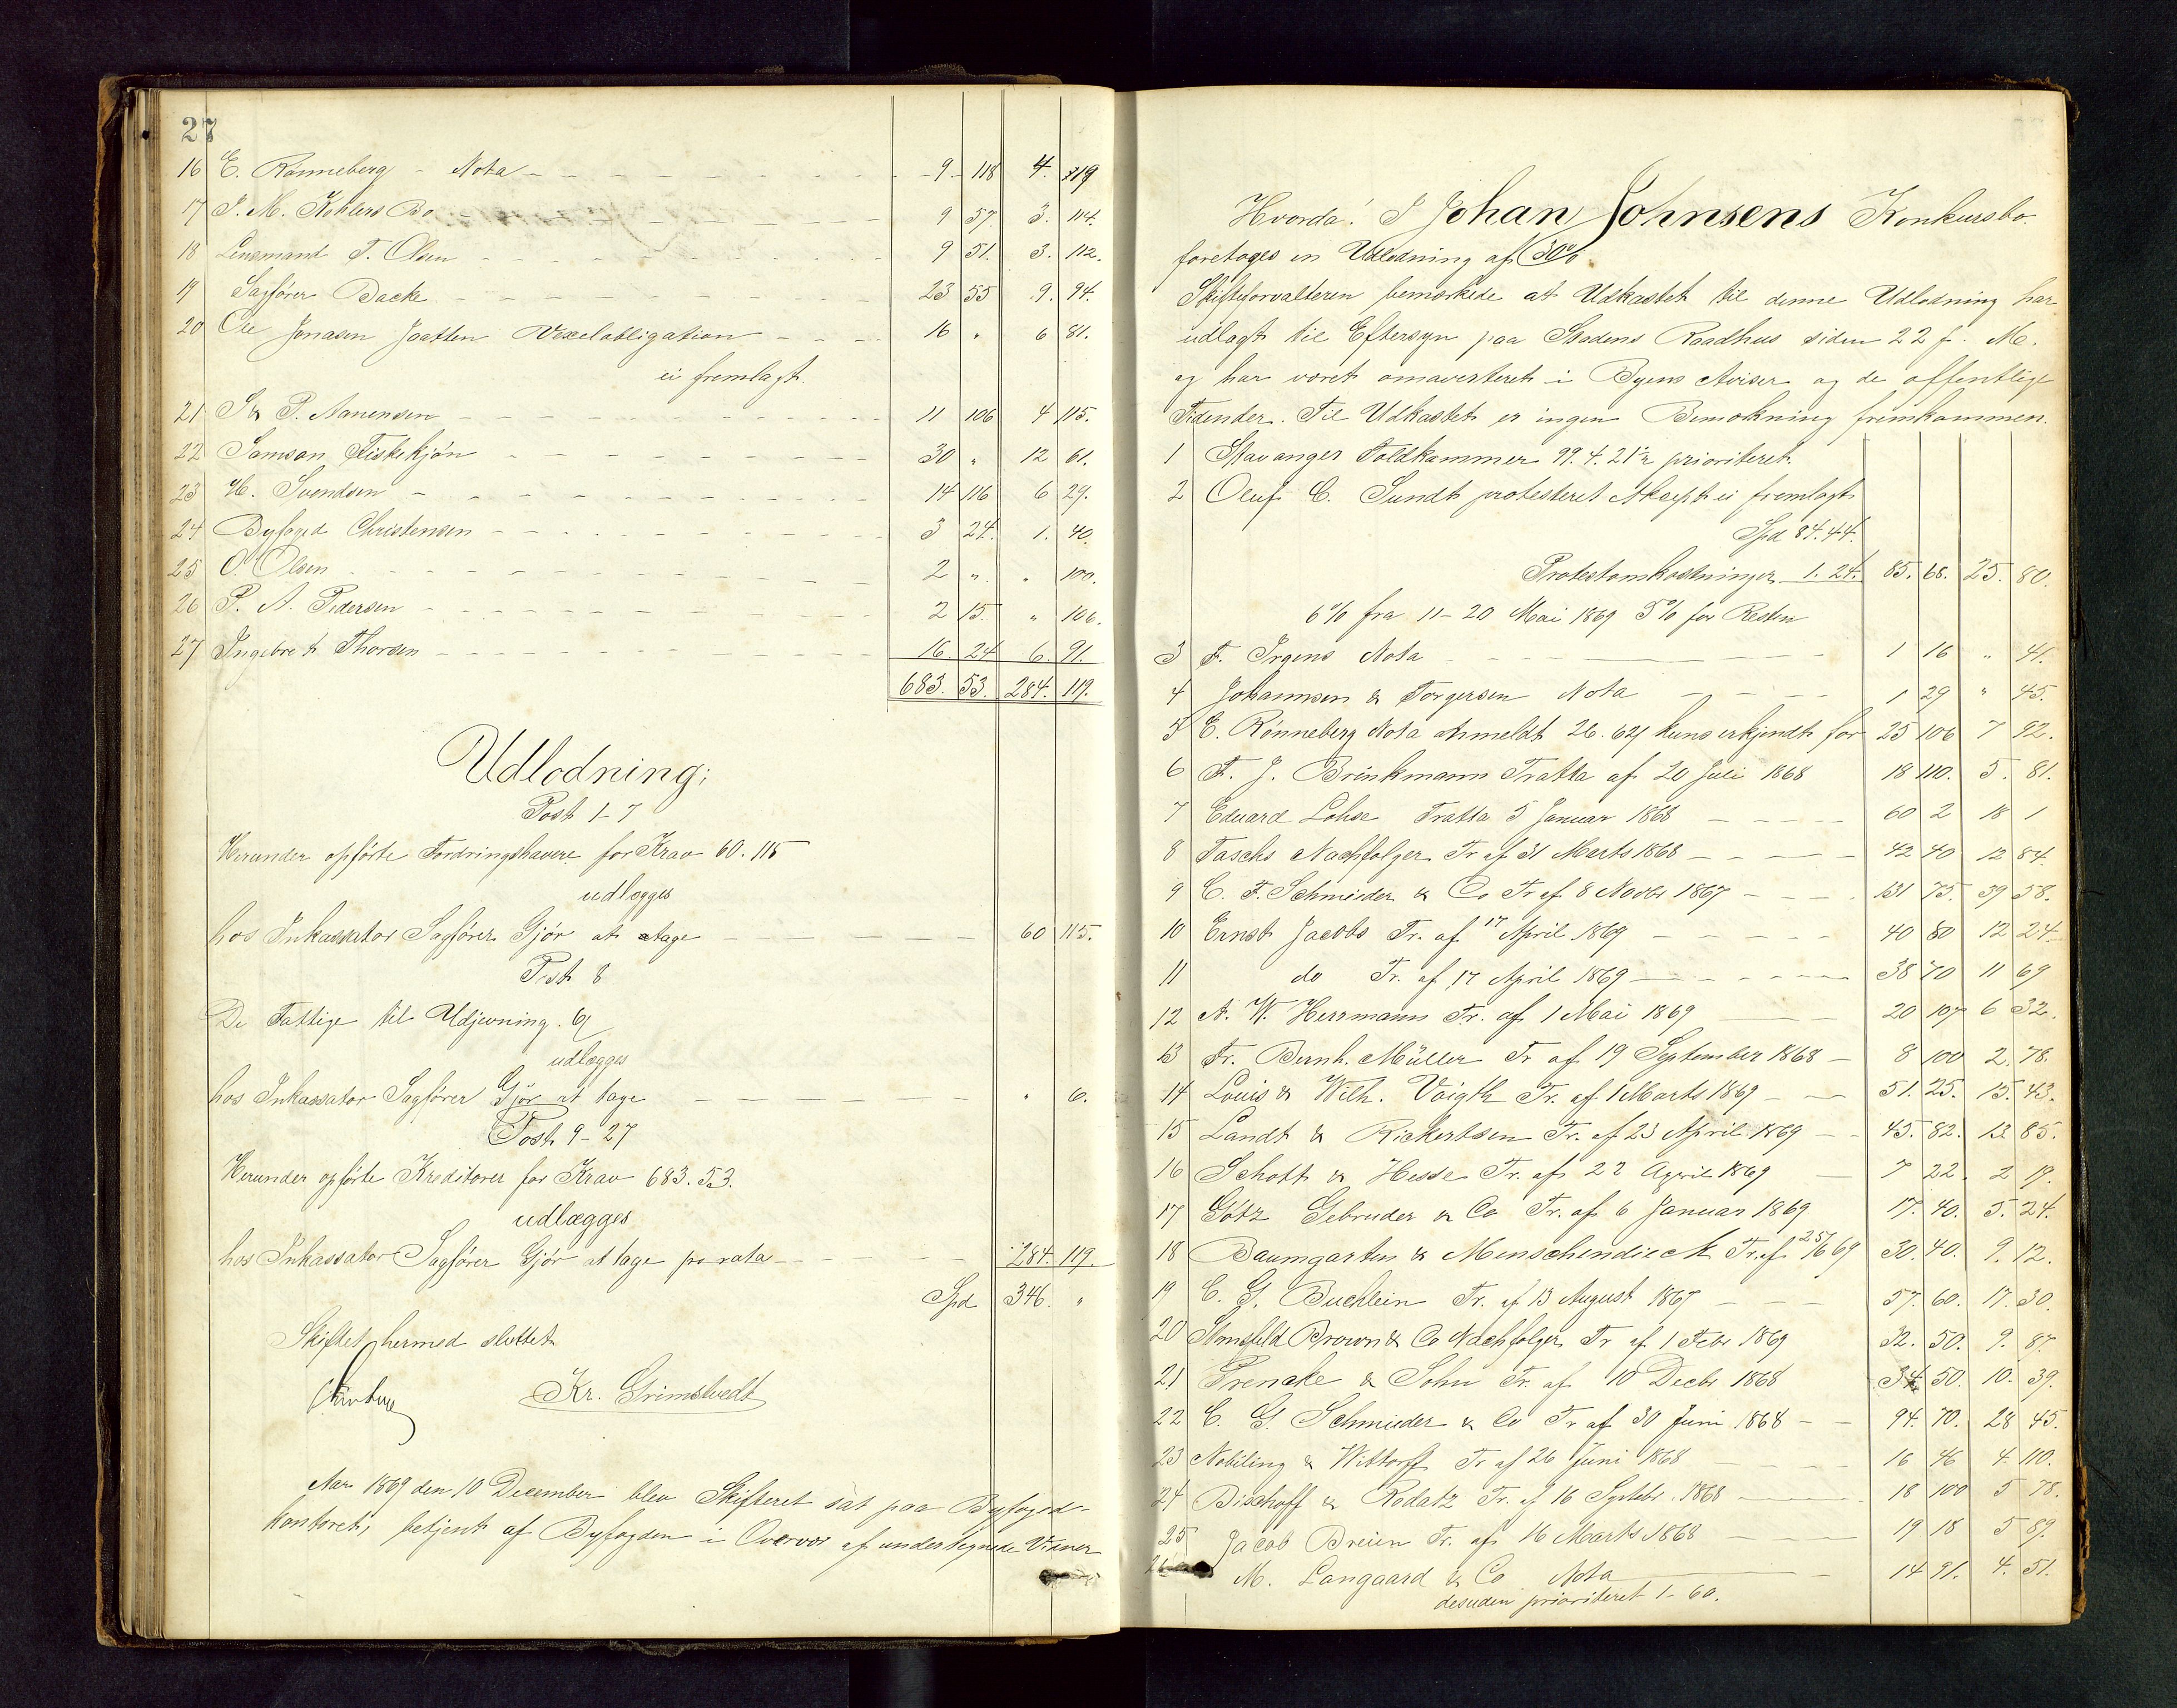 27
16 E. Rönneberg - Nota - 9. 118 4. 119
17 J. M. Kohlers Bo 9 57. 3. 114.
18 Lensmand T. Olsen 9 51. 3. 112.
19 Sagfører Backe 23 55 9. 94.
20 Ole Jonasen Jaatten Vexelobligation 16 " 6 81.
ei fremlagt.
21 S & P. Aanensen 11 106 4 115.
22 Samson Fiskekjön 30 " 12 61.
23 H. Svendsen 14 116 6 29.
24 Byfoged Christensen 3 24. 1. 40.
25 O. Olsen 2 " " 100.
26 P. A. Pedersen 2 15. " 106.
27 Ingebret Thorsen 16. 24 6. 91.
683. 53. 284. 119.
Udlodning;
Post 1-7
Herunder opførte Fordringshavere for Krav 60. 115
udlægges
hos Inkassator Sagfører Gjør at tage 60 115.
Post 8
De Fattige til Udjevning. 6
udlægges
hos Inkassator Sagfører Gjør at tage " 6.
Post 9-27
Herunder opførte Kreditorer for Krav 683. 53.
udlægges
hos Inkassator Sagfører Gjør at tage pro rata 284. 119.
Spd 346. "
Skiftet hermed sluttet
Kr. Grimstvedt
Aar 1869 den 10 December blev Skifteret sat paa Byfoged-
kontoret, betjent af Byfogden i Overvær af undertegnede Vidner
Hvorda: I Johan Johnsens Konkursbo.
foretages en Udlodning af 30%.
Skifteforvalteren bemærkede at Udkastet til denne Udlodning har
udlagt til Eftersyn paa Stadens Raadhus siden 22 f. M.
og har været omaverteret i Byens Aviser og de offentlige
Tidender. Til Udkastet er ingen Bemærkning fremkommen.
1 Stavanger Toldkammer 99. 4. 21 prioriteret.
2 Oluf C. Sundt protesteret Akcept ei fremlagt
Spd 84. 44.
Protestomkostninger 1. 24. 85. 68. 25. 80.
6% fra 11-20 Mai 1869 5% for Resten
3 F. Irgens Nota 1 16 " 41.
4 Johannsen & Torgersen Nota 1 29 " 45.
5 E. Rönneberg Nota anmeldt 26. 62 kuns erkjendt for 25 106 7 92.
6 F. J. Brinkmann Tratta af 20 Juli 1868 18 110. 5. 81.
7 Eduard Lohse Tratta 5 Januar 1868 60 2 18 1
8 Taschs Nachfolger Tr af 31 Marts 1868 42 40 12 84.
9 C. F. Schmieder & Co Tr af 8 Novbr 1867 131 75. 39 58.
10 Ernst Jacobs Tr. af 17 April 1869 40 80 12 24.
11 do Tr. af 17 April 1869 38 70 11 69
12 A. W. Herrmann Tr. af 1 Mai 1869 20 107 6 32.
13 Fr. Bernh. Müller Tr af 19 September 1868 8 100 2. 78.
14 Louis & Wilh. Voigth Tr. af 1 Marts 1869 51. 25. 15. 43.
15 Landt & Rickertsen Tr. af 23 April 1869 45. 82. 13 85.
16 Schott & Hesse Tr. af 22 April 1869 7 22. 2 19.
17 Götz Gebruder & Co Tr. af 6 Januar 1869 17. 40. 5. 24.
18 Baumgarten & Menschendieck Tr. af 69 30. 40. 9. 12.
19 C. G. Buchlein Tr. af 13 August 1867 57. 60. 17. 30.
20 Brown & Co Nachfolger Tr af 1 Febr 1869 32. 50. 9. 87.
21 Frenake & Sohn Tr. af 10 Decbr 1868 34. 50. 10. 39.
22 C. G. Schmieder & Co Tr af 30 Juni 1868 94. 70. 28 45.
23 Nobiling & Wittorff Tr af 26 Juni 1868 16 46 4. 110.
24 Bischoff & Rodatz Tr. af 16 Septbr. 1868 18 100 5 78.
25 Jacob Breien Tr. af 16 Marts 1868 19 18 5 89.
26 M. Langaard & Co Nota 14 91. 4. 51.
desuden prioriteret 1-60.